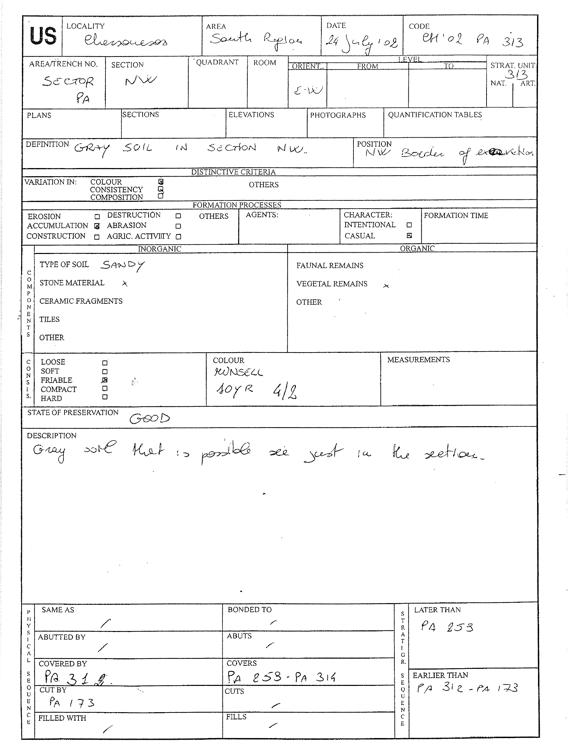 US
LOCALITY
Chersonesos
AREA
South Region
DATE
24 July '02
CODE
CH'02 PA 313
AREA/TRENCH NO.
SECTOR
PA
SECTION
NW
QUADRANT
ROOM
LEVEL
ORIENT. FROM TO
E-W
STRAT. UNIT
313
NAT. ART.
PLANS
SECTIONS
ELEVATIONS
PHOTOGRAPHS
QUANTIFICATION TABLES
DEFINITION GRAY SOIL IN SECTION NW.
POSITION
NW Border of
DISTINCTIVE CRITERIA
VARIATION IN: COLOUR
CONSISTENCY
COMPOSITION
OTHERS
FORMATION PROCESSES
EROSION DESTRUCTION OTHERS
ACCUMULATION ABRASION
CONSTRUCTION AGRIC. ACTIVITY
AGENTS:
CHARACTER:
INTENTIONAL
CASUAL
FORMATION TIME
COMPONENTS
INORGANIC
TYPE OF SOIL SANDY
STONE MATERIAL x
CERAMIC FRAGMENTS
TILES
OTHER
ORGANIC
FAUNAL REMAINS
VEGETAL REMAINS x
OTHER
CONSIS.
LOOSE
SOFT
FRIABLE
COMPACT
HARD
COLOUR
MUNSELL
10YR 4/2
MEASUREMENTS
STATE OF PRESERVATION GOOD
DESCRIPTION
Gray soil that is possible see just in the section.
PHYSICAL SEQUENCE
SAME AS /
BONDED TO /
ABUTTED BY /
ABUTS /
COVERED BY
PA 312
COVERS
PA 253 - PA 314
CUT BY
PA 173
CUTS /
FILLED WITH /
FILLS /
STRATIGR. SEQUENCE
LATER THAN
PA 253
EARLIER THAN
PA 312 - PA 173